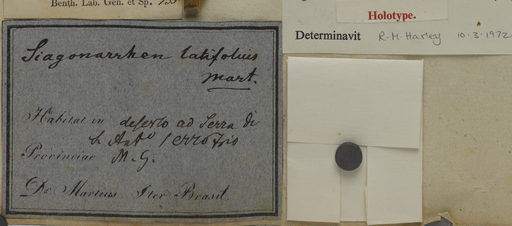 Benth. Lab. Gen. et Sp.
Siagonarrhen latifolius
Mart.
Habitat in deserto ad Serra di
S. Antº / Serro Frio
Provinciae M. G.
Dr. Martius Iter Brasil.
Holotype.
Determinavit R. M. Harley 10.3.1972